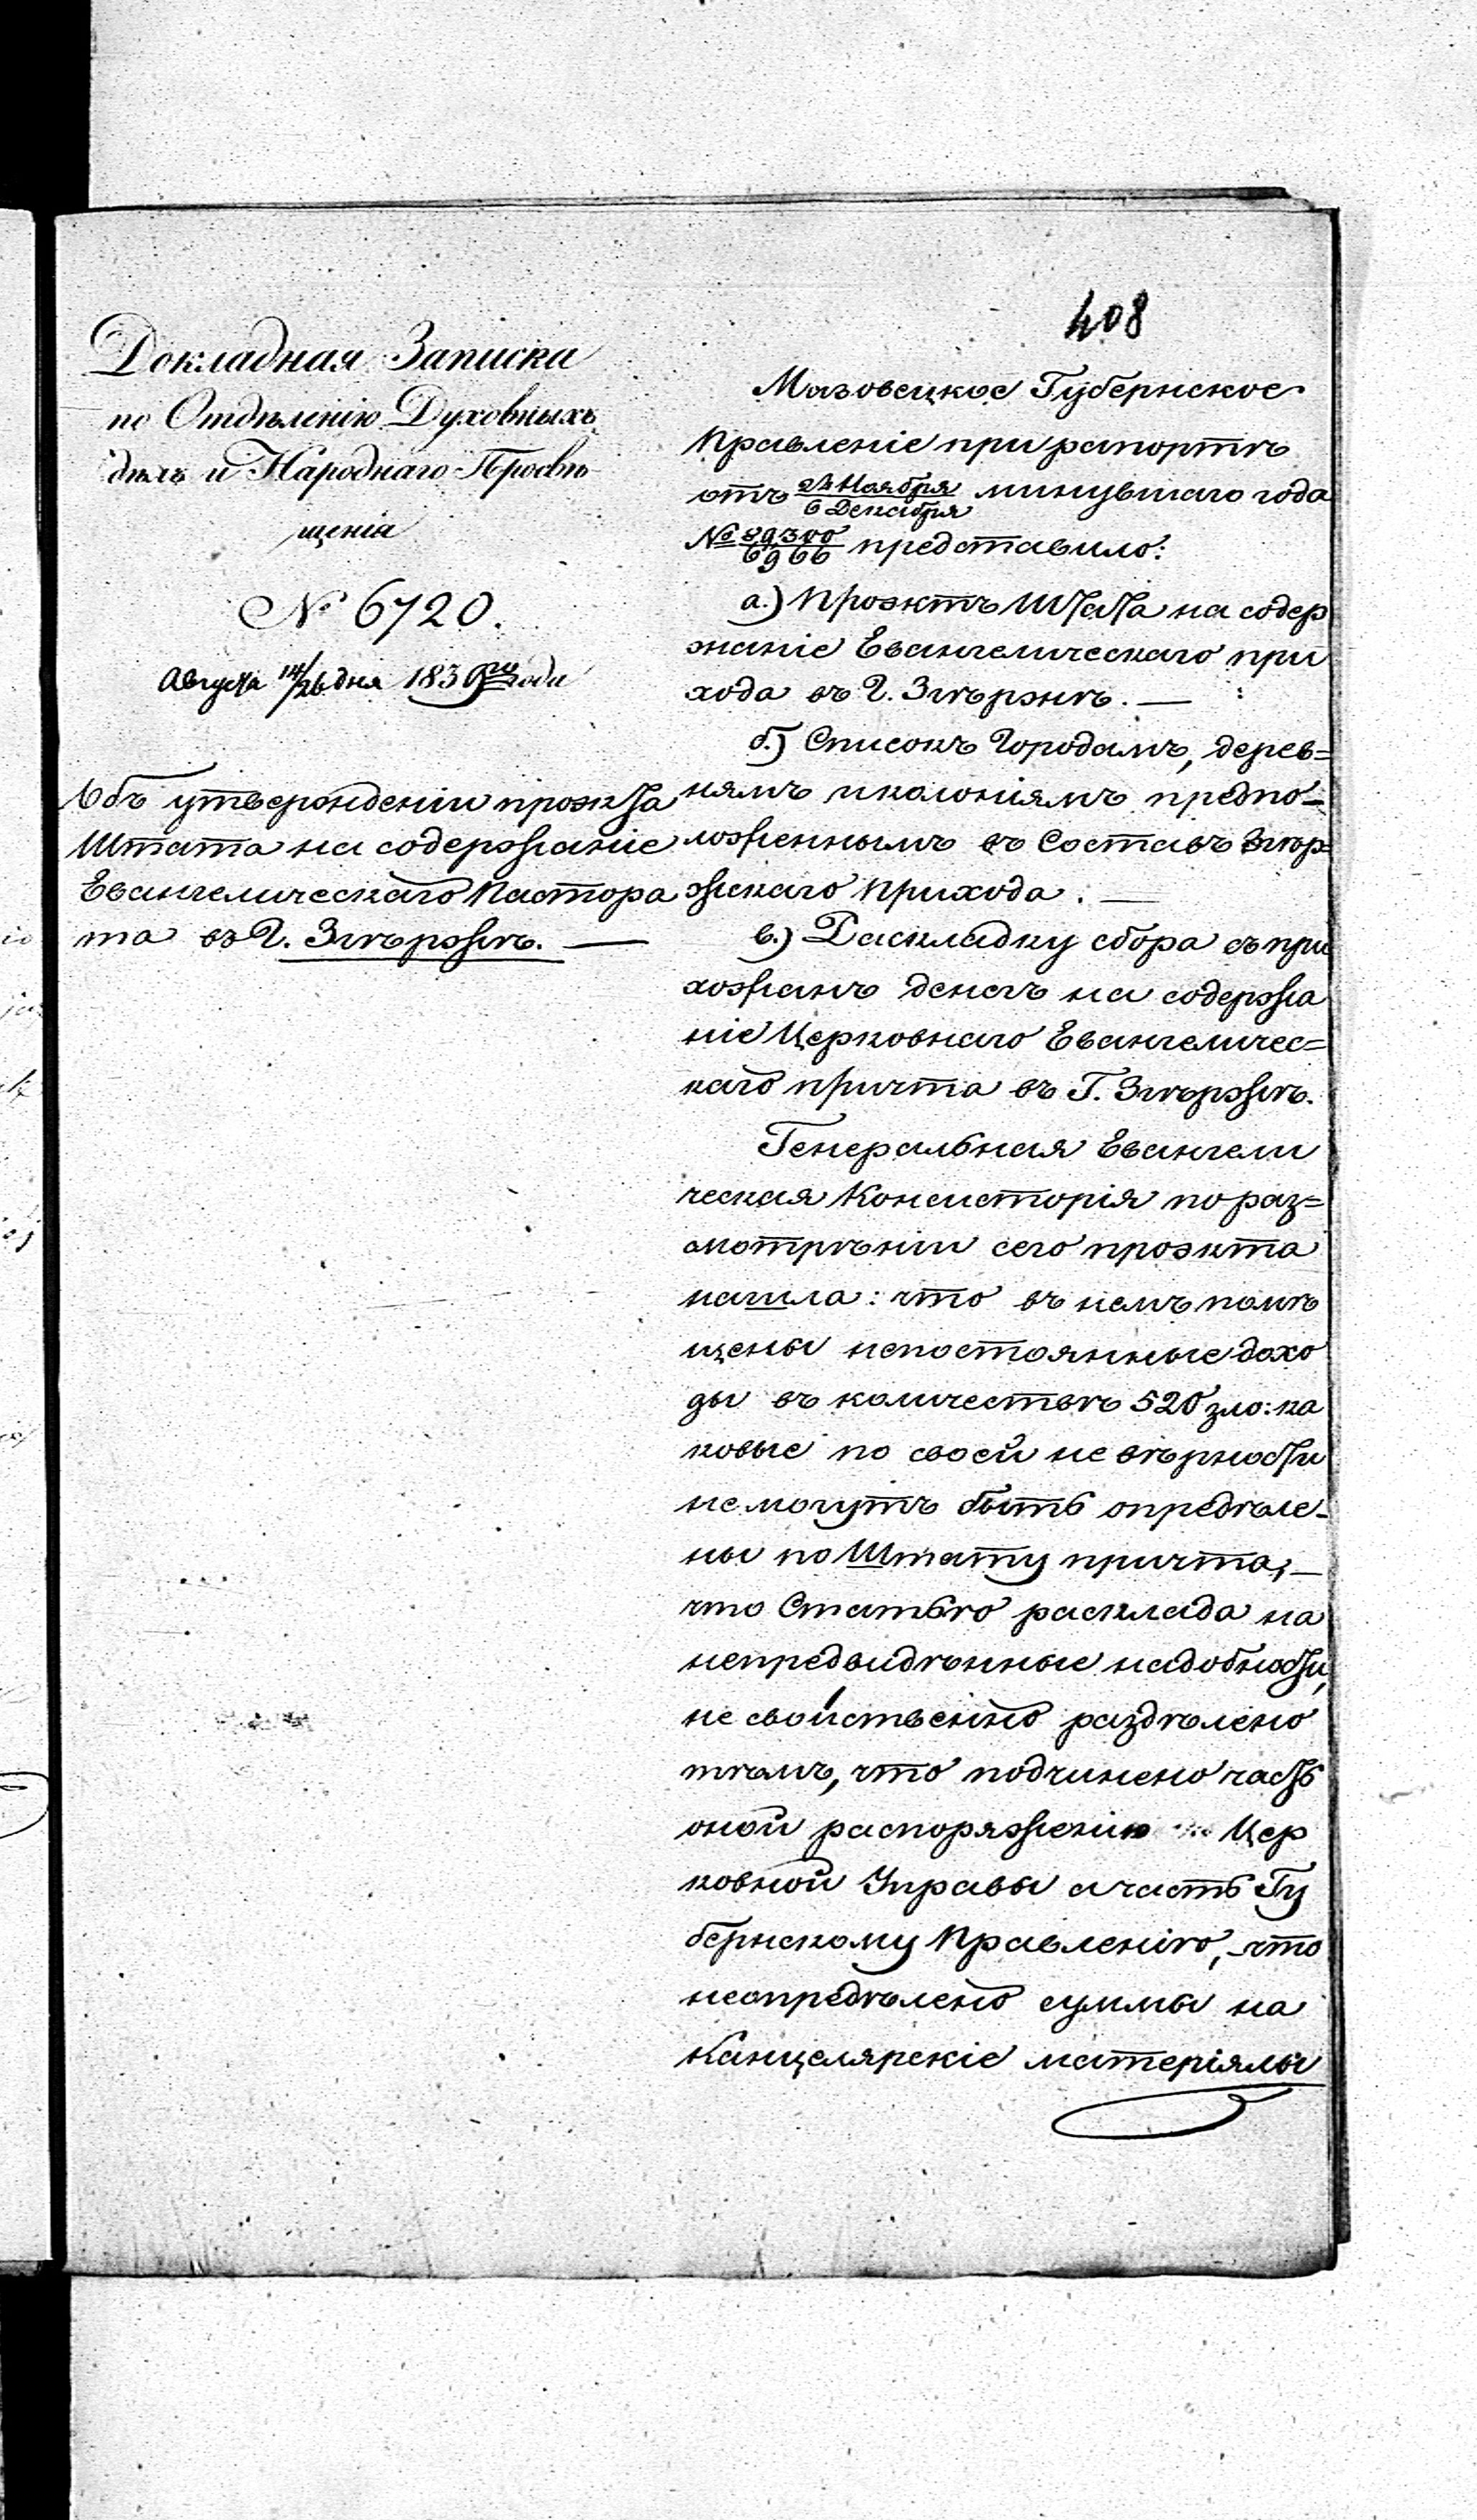 408
Докладная Записка
по Отдѣленію Духовныхъ
дѣлъ и Народнаго Просвѣ
щенія
№ 6720.
Августа 14/26 дня 1839го года
Объ утвержденіи проэкта
Штата на содержаніе
Евангелическаго Пастора
та въ Г. Згѣржѣ. —
Мазовецкое Губернское
Правленіе при рапортѣ
отъ 24 Ноября/6 Декабря минувшаго года
№ 89300/6966 представило:
а.) Проэктъ Штата на содер
жаніе Евангелическаго при
хода въ Г. Згѣржѣ. —
б.) Списокъ Городамъ, дерев=
нямъ и колоніямъ предпо-
ложеннымъ въ Составъ Згѣр=
жскаго прихода. —
в.) Раскладку сбора съ при
хожанъ денегъ на содержа
ніе Церковнаго Евангеличес=
каго причта въ Г. Згѣржѣ.
Генеральная Евангели
ческая Консисторія по раз=
смотрѣніи сего проэкта
нашла: что въ немъ помѣ
щены непостоянные дохо
ды въ количествѣ 520 зло: ка
ковые по своей не вѣрности
не могутъ быть опредѣле-
ны по Штату причта, —
что Статью расклада на
непредвидѣнные надобности,
не свойственно раздѣлено
тѣмъ, что подчинено часть
оной распоряженію Цер
ковной Управы а часть Гу
бернскому Правленію, – что
неопредѣлено суммы на
Канцелярскіе матеріялы